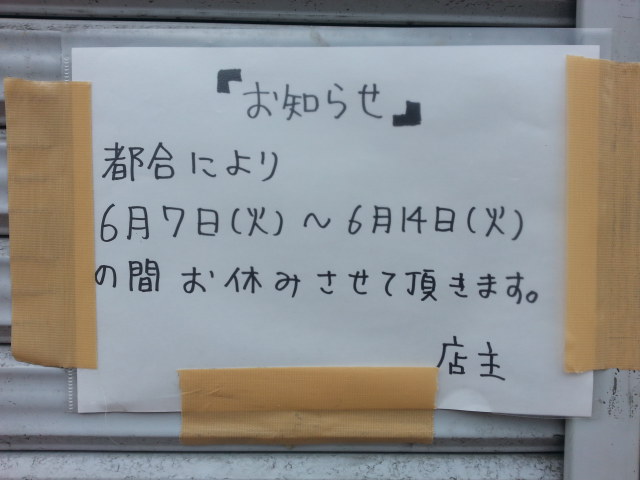 『お知らせ』
都合により
6月7日(火)～6月14日(火)
の間 お休みさせて頂きます。
店主